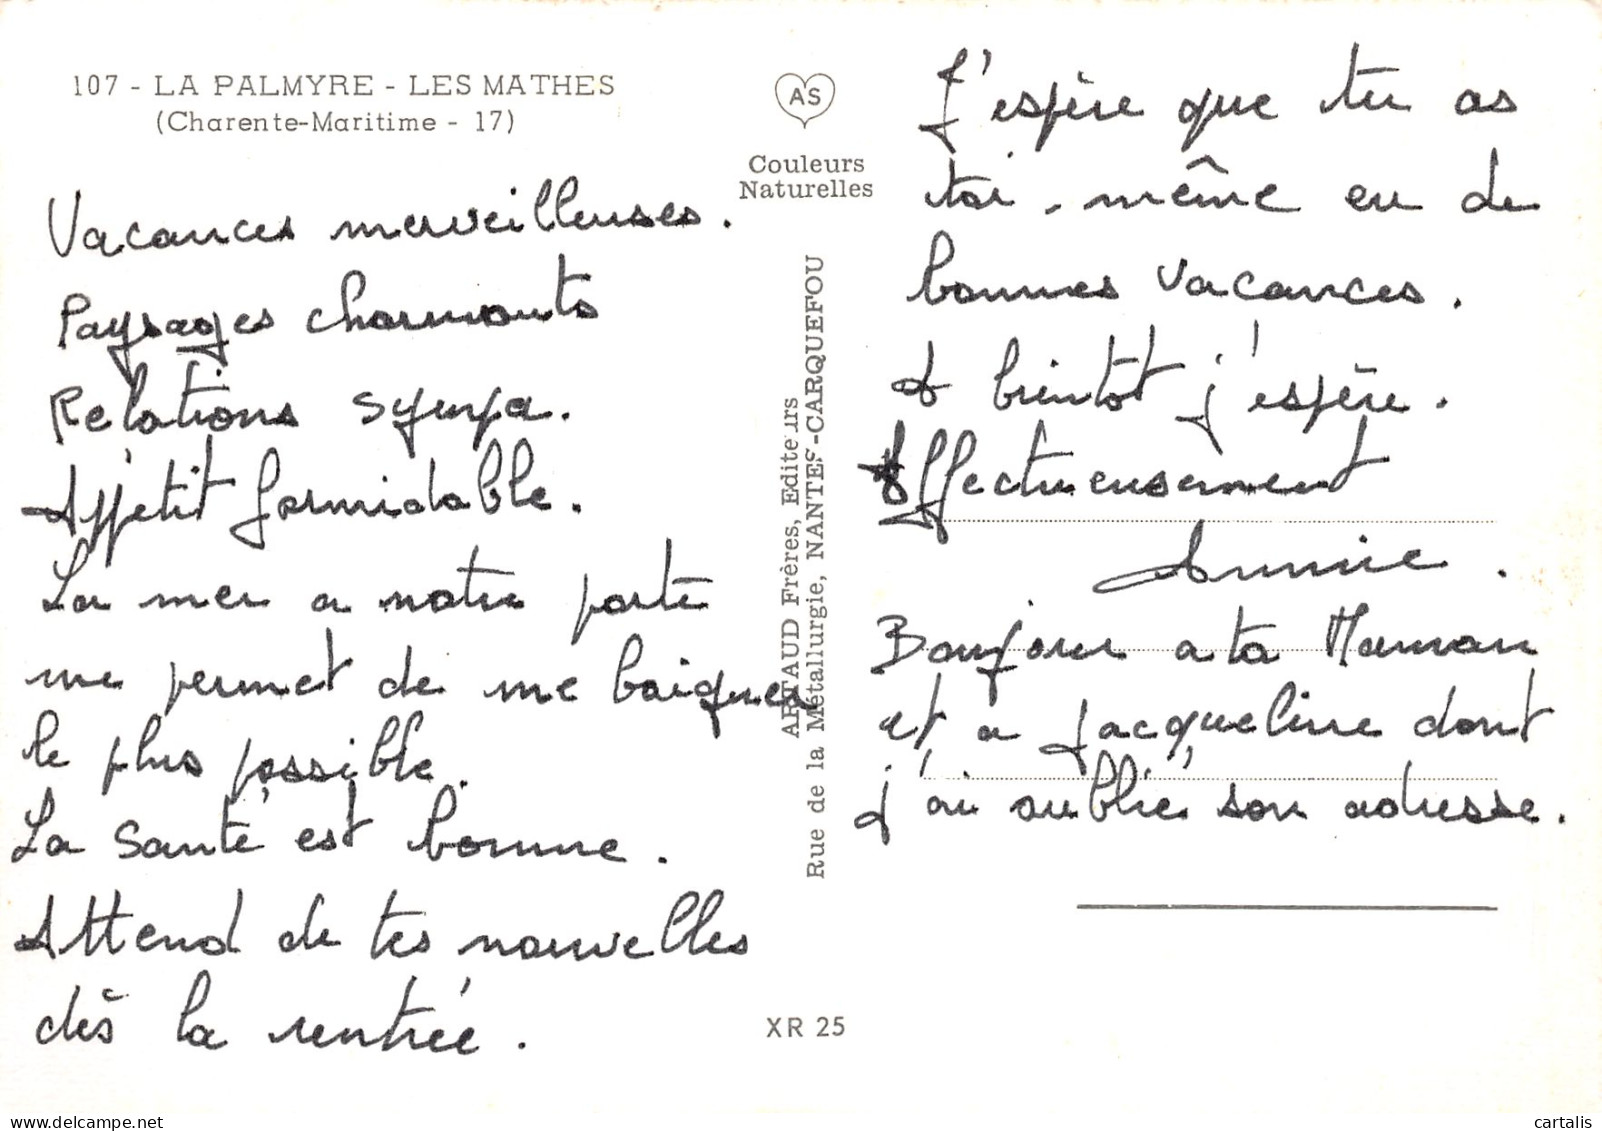 107 - LA PALMYRE - LES MATHES
(Charente-Maritime - 17)
Vacances merveilleuses.
Paysages charmants
Relations sympa.
Appetit formidable.
La mer a notre porte
me permet de me baigner
le plus possible.
La santé est bonne.
Attend de tes nouvelles
dès la rentrée.
AS
Couleurs
Naturelles
ARTAUD Frères, Editeurs
Rue de la Métallurgie, NANTES-CARQUEFOU
XR 25
J'espère que tu as
toi-même eu de
bonnes vacances.
A bientôt j'espère.
Affectueusement
Annie.
Bonjour a ta Maman
et a Jacqueline dont
j'ai oublié son adresse.
cartalis